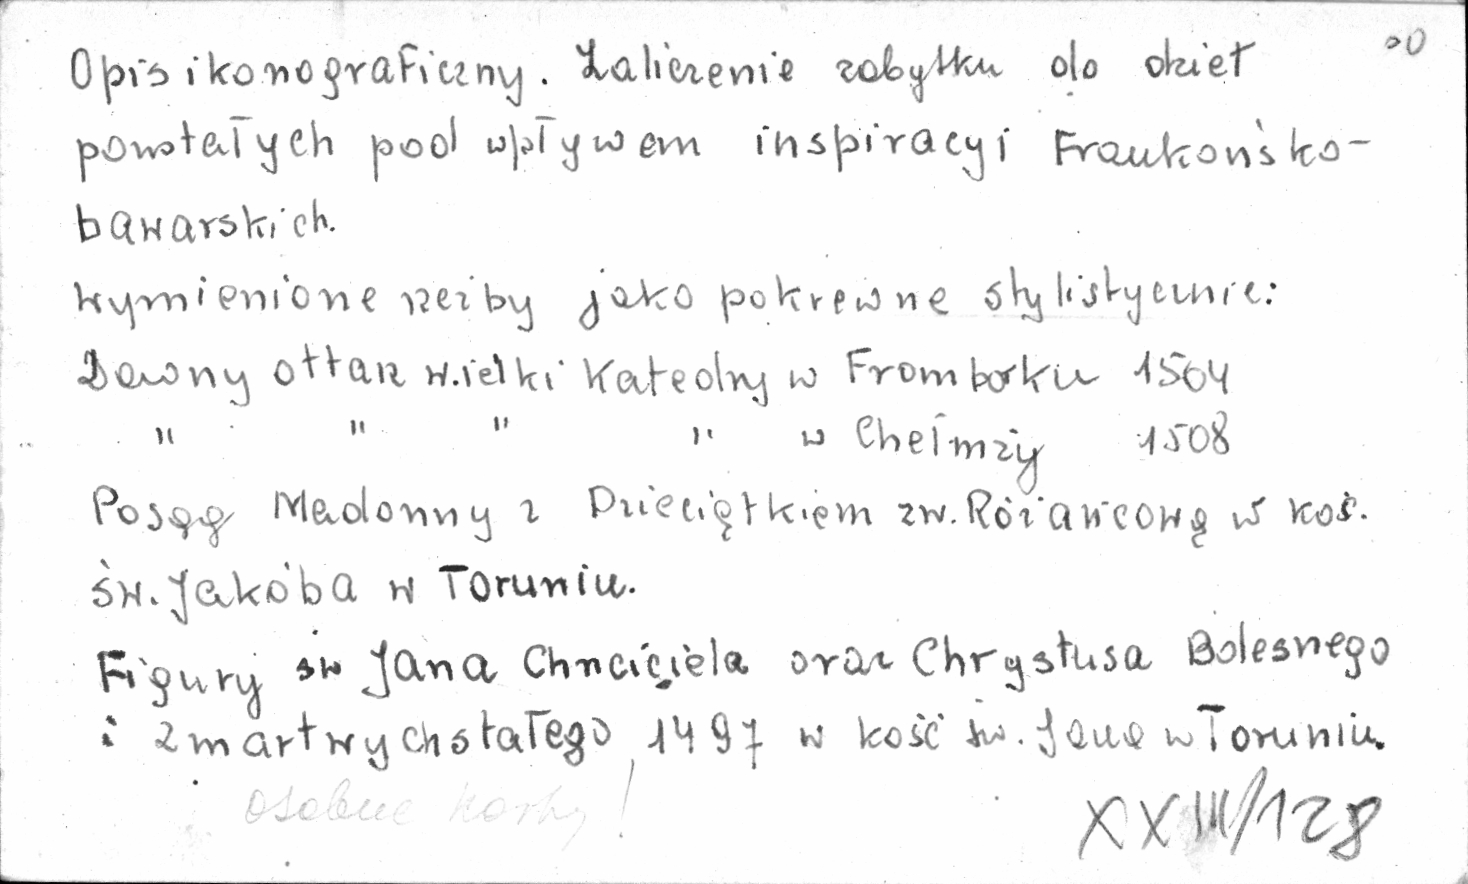 Opis ikonograficzny. Zaliczenie zabytku do dzieł
powstałych pod wpływem inspiracyi Frankońsko-
bawarskich.
Wymienione rzeźby jako pokrewne stylistycznie:
Dawny ołtarz wielki Katedry w Fromborku 1504
" " " " w Chełmży 1508
Posąg Madonny z Dzieciątkiem zw. Różańcową w koś.
św. Jakóba w Toruniu.
Figury św Jana Chrzciciela oraz Chrystusa Bolesnego
i zmartwychstałego 1497 w kość św. Jana w Toruniu.
osobne karty!
XXIII/128